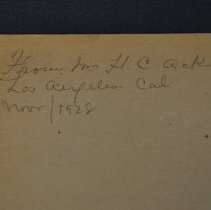 From Mr H. C. Ack
Los Angeles Cal
Novr/1928